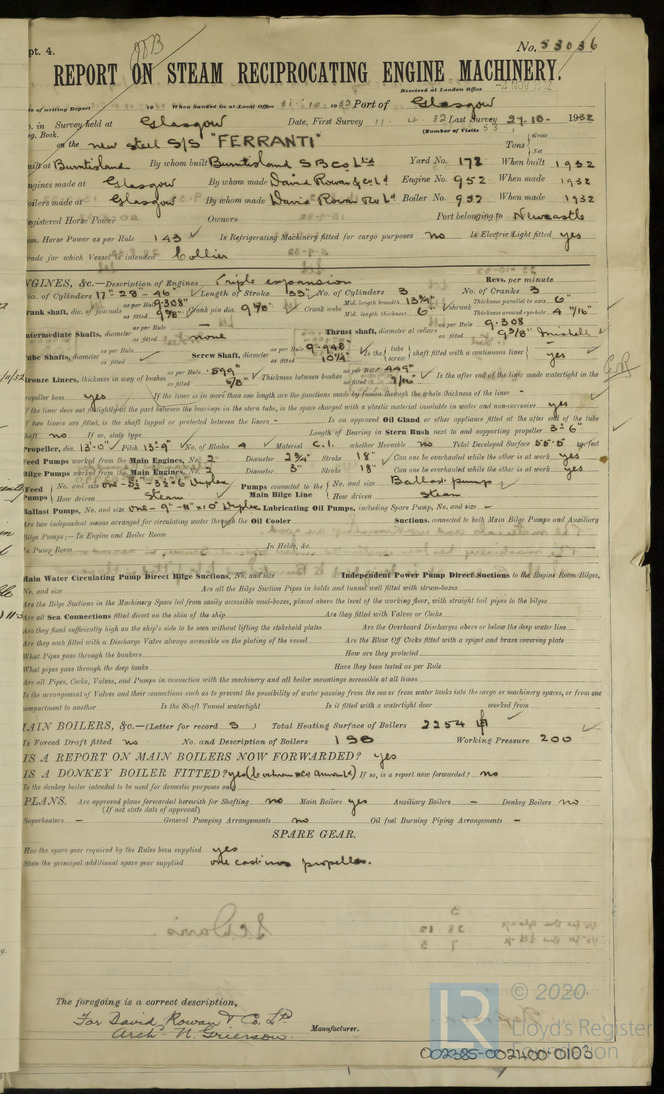 pt. 4.
No. 53036
REPORT ON STEAM RECIPROCATING ENGINE MACHINERY.
Received at London Office
of writing Report 19 When handed in at Local Office 31. 10. 1932 Port of Glasgow
in Survey held at Glasgow Date, First Survey 11. 4. 32 Last Survey 27.10. 1932
Book. (Number of Visits 53)
on the new steel S/S "FERRANTI" Tons { Gross Net
uilt at Burntisland By whom built Burntisland S B Co Ltd Yard No. 172 When built 1932
ngines made at Glasgow By whom made David Rowan & Co Ld Engine No. 952 When made 1932
oilers made at Glasgow By whom made David Rowan & Co Ld Boiler No. 952 When made 1932
egistered Horse Power Owners Port belonging to Newcastle
om. Horse Power as per Rule 143 Is Refrigerating Machinery fitted for cargo purposes no Is Electric Light fitted yes
rade for which Vessel is intended Collier
NGINES, &c.—Description of Engines Triple expansion Revs. per minute
ia. of Cylinders 17"-28-46" Length of Stroke 33" No. of Cylinders 3 No. of Cranks 3
rank shaft, dia. of journals as per Rule 9.308" as fitted 9 3/8" Crank pin dia. 9 7/8" Crank webs Mid. length breadth 13 3/4" Mid. length thickness 6" shrunk Thickness parallel to axis 6" Thickness around eye-hole 4 11/16"
ntermediate Shafts, diameter as per Rule as fitted none Thrust shaft, diameter at collars as per Rule 9.308 as fitted 9 3/8" Michell
ube Shafts, diameter as per Rule as fitted Screw Shaft, diameter as per Rule 9.998" as fitted 10 1/4" Is the { tube screw } shaft fitted with a continuous liner { yes
ronze Liners, thickness in way of bushes as per Rule .599" as fitted 5/8" Thickness between bushes as per Rule .449" as fitted 7/16" Is the after end of the liner made watertight in the
propeller boss yes If the liner is in more than one length are the junctions made by fusion through the whole thickness of the liner -
If the liner does not fit tightly at the part between the bearings in the stern tube, is the space charged with a plastic material insoluble in water and non-corrosive yes
If two liners are fitted, is the shaft lapped or protected between the liners - Is an approved Oil Gland or other appliance fitted at the after end of the tube
shaft no If so, state type Length of Bearing in Stern Bush next to and supporting propeller 3'-6"
Propeller, dia. 13'-0" Pitch 13'-9" No. of Blades 4 Material C.I. whether Moveable no Total Developed Surface 55.5 sq. feet
Feed Pumps worked from the Main Engines, No. 2 Diameter 2 3/4" Stroke 18" Can one be overhauled while the other is at work yes
Bilge Pumps worked from the Main Engines, No. 2 Diameter 3" Stroke 18" Can one be overhauled while the other is at work yes
Feed Pumps { No. and size How driven Steam Pumps connected to the Main Bilge Line { No. and size Ballast pump How driven Steam
Ballast Pumps, No. and size one - 9"-11"x10" Duplex Lubricating Oil Pumps, including Spare Pump, No. and size -
Are two independent means arranged for circulating water through the Oil Cooler Suctions, connected to both Main Bilge Pumps and Auxiliary
Bilge Pumps;—In Engine and Boiler Room
In Pump Room In Holds, &c.
Main Water Circulating Pump Direct Bilge Suctions, No. and size Independent Power Pump Direct Suctions to the Engine Room Bilges,
No. and size Are all the Bilge Suction Pipes in holds and tunnel well fitted with strum-boxes
Are the Bilge Suctions in the Machinery Space led from easily accessible mud-boxes, placed above the level of the working floor, with straight tail pipes to the bilges
Are all Sea Connections fitted direct on the skin of the ship Are they fitted with Valves or Cocks
Are they fixed sufficiently high on the ship's side to be seen without lifting the stokehold plates Are the Overboard Discharges above or below the deep water line
Are they each fitted with a Discharge Valve always accessible on the plating of the vessel Are the Blow Off Cocks fitted with a spigot and brass covering plate
What Pipes pass through the bunkers How are they protected
What pipes pass through the deep tanks Have they been tested as per Rule
Are all Pipes, Cocks, Valves, and Pumps in connection with the machinery and all boiler mountings accessible at all times
Is the arrangement of Valves and their connections such as to prevent the possibility of water passing from the sea or from water tanks into the cargo or machinery spaces, or from one
ompartment to another Is the Shaft Tunnel watertight Is it fitted with a watertight door worked from
MAIN BOILERS, &c.—(Letter for record S) Total Heating Surface of Boilers 2254
Is Forced Draft fitted no No. and Description of Boilers 1 SB Working Pressure 200
IS A REPORT ON MAIN BOILERS NOW FORWARDED? yes
IS A DONKEY BOILER FITTED? yes If so, is a report now forwarded? no
Is the donkey boiler intended to be used for domestic purposes only
PLANS. Are approved plans forwarded herewith for Shafting no Main Boilers yes Auxiliary Boilers - Donkey Boilers no
(If not state date of approval)
Superheaters - General Pumping Arrangements no Oil fuel Burning Piping Arrangements -
SPARE GEAR.
Has the spare gear required by the Rules been supplied yes
State the principal additional spare gear supplied one cast iron propeller.
The foregoing is a correct description,
For David Rowan & Co. Ltd
Arch. N. Grierson. Manufacturer.
© 2020
Lloyd's Register
Foundation
002385-002400-0103